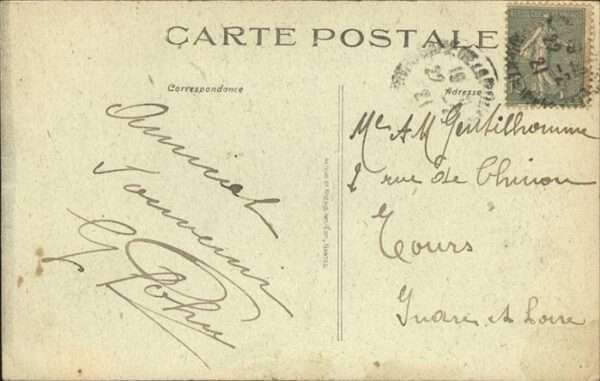 CARTE POSTALE
Correspondance
Adresse
Amical
Souvenir
G
Mr A M Gentilhomme
2 rue de Chinon
Tours
Indre et Loire